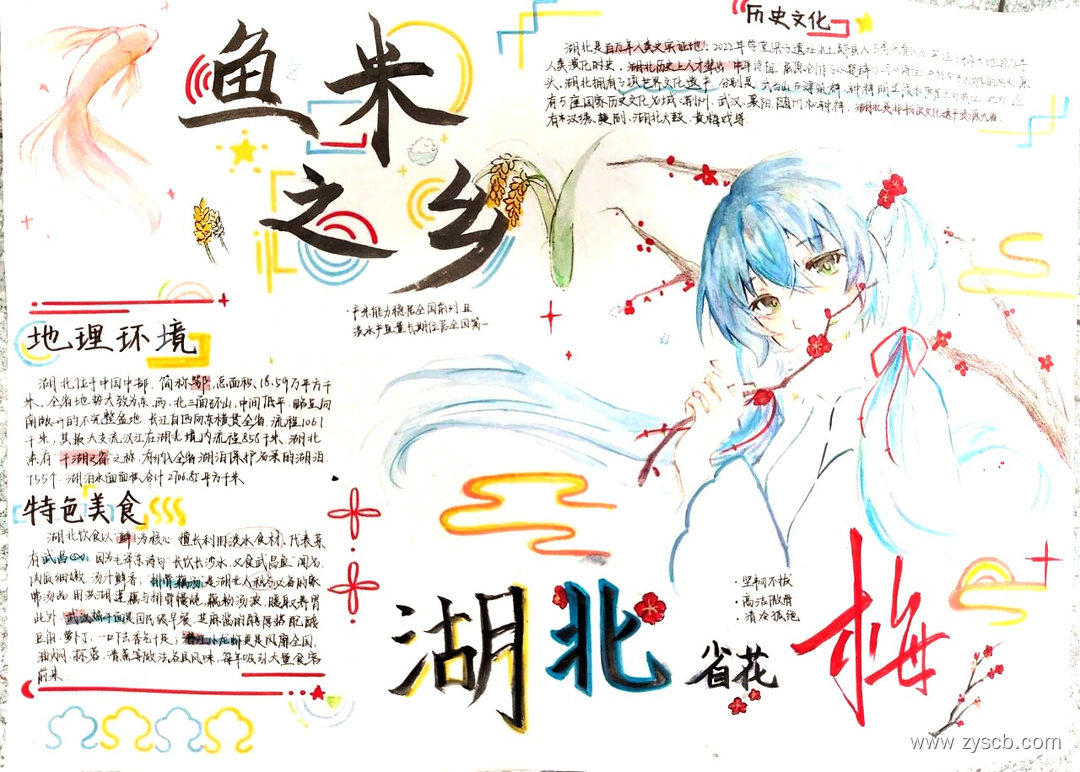 鱼米
之乡
历史文化
湖北是百万年人类史实证地
人类演化时史,湖北历史上人才辈出
头,湖北拥有
有5座国家历史文化名城,荆州、武汉、襄阳、随州和钟祥,湖北是非物质文化遗产资源大省
有汉绣、楚剧、湖北大鼓、黄梅戏等
·产米能力稳居全国前列且
淡水产量长期位居全国第一
地理环境
湖北位于中国中部,简称鄂,总面积18.59万平方千
米,全省地势大致为东、西、北三面环山,中间低平,略呈向
南敞开的不完整盆地.长江自西向东横贯全省,流程1061
千米,其最大支流汉江在湖北境内流程858千米.湖北
素有千湖之省之称.有纳入全省湖泊保护名录的湖泊
755个.湖泊水面面积合计2706.85平方千米
特色美食
湖北饮食以鲜为核心 擅长利用淡水食材,代表菜
有武昌鱼,因为毛泽东诗句"长饮长沙水,又食武昌鱼"闻名
肉质细嫩,汤汁鲜香;排骨藕汤是湖北人秋冬必备的家
常汤品 用洪湖莲藕与排骨慢炖,藕粉汤浓,暖身养胃
此外,武汉热干面是国民级早餐,芝麻酱的醇厚搭配酸
豆角、萝卜丁,一口下去香气十足;潜江小龙虾更是风靡全国,
油焖、蒜蓉、清蒸等做法各具风味,每年吸引大量食客
前来.
·坚韧不拔
·高洁傲骨
·清冷孤绝
湖北省花 梅
www.zyscb.com